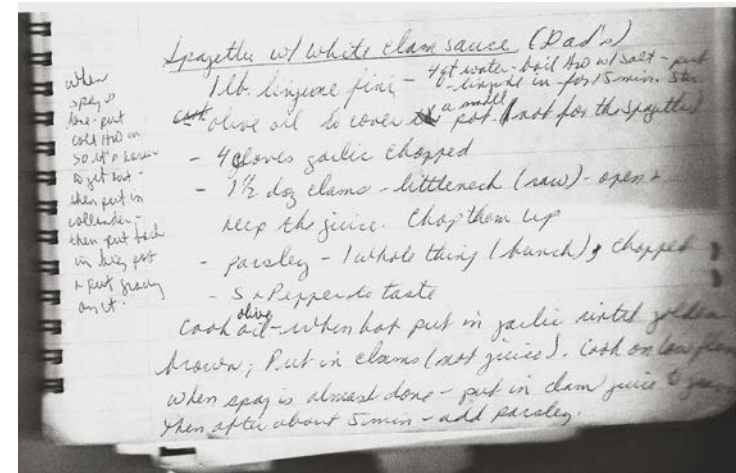 Spagettie w/ white clam sauce (Dad's)
1 lb. linguine fini - 4 qt water - boil H2O w/ salt - put
linguine in for 15 min
olive oil to cover a small pot. (not for the spagettie)
- 4 cloves garlic chopped
- 1½ doz clams - littleneck (raw) - open +
keep the juice. Chop them up
- parsley - 1 whole thing (bunch), chopped
- S + Pepper to taste
Cook olive oil - when hot put in garlic until golden
brown; Put in clams (not juice). Cook on low flame
when spag is almost done - put in clam juice
then after about 5 min - add parsley.
when
spag is
done put
cold H2O in
so it's easier
to get out -
then put in
collander -
then put back
in big pot
+ put gravy
on it.